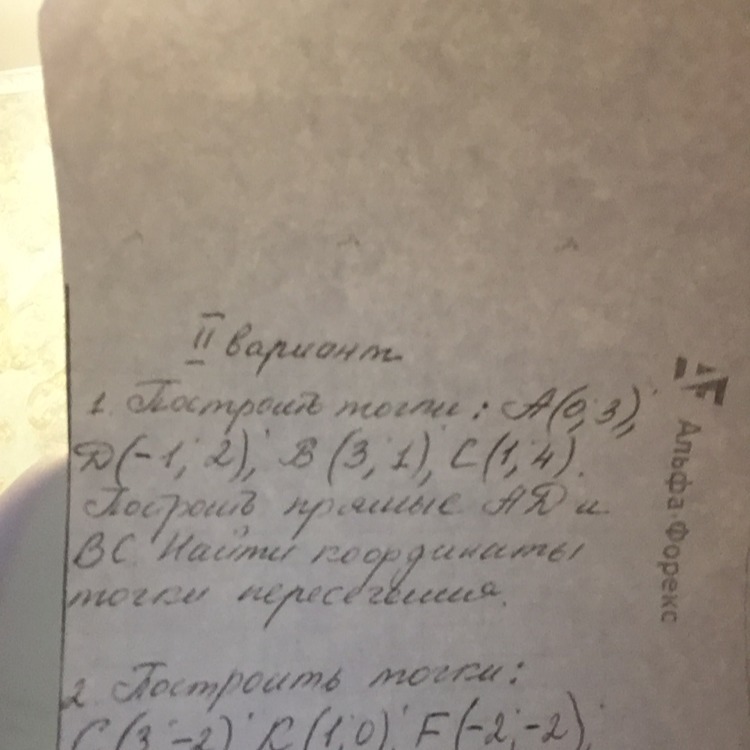 II вариант
1. Построить точки: A(0; 3),
D(-1; 2); B(3; 1), C(1; 4).
Построить прямые AD и
BC. Найти координаты
точки пересечения.
2. Построить точки:
C(3; -2); K(1; 0); F(-2; -2);
Альфа·Форекс